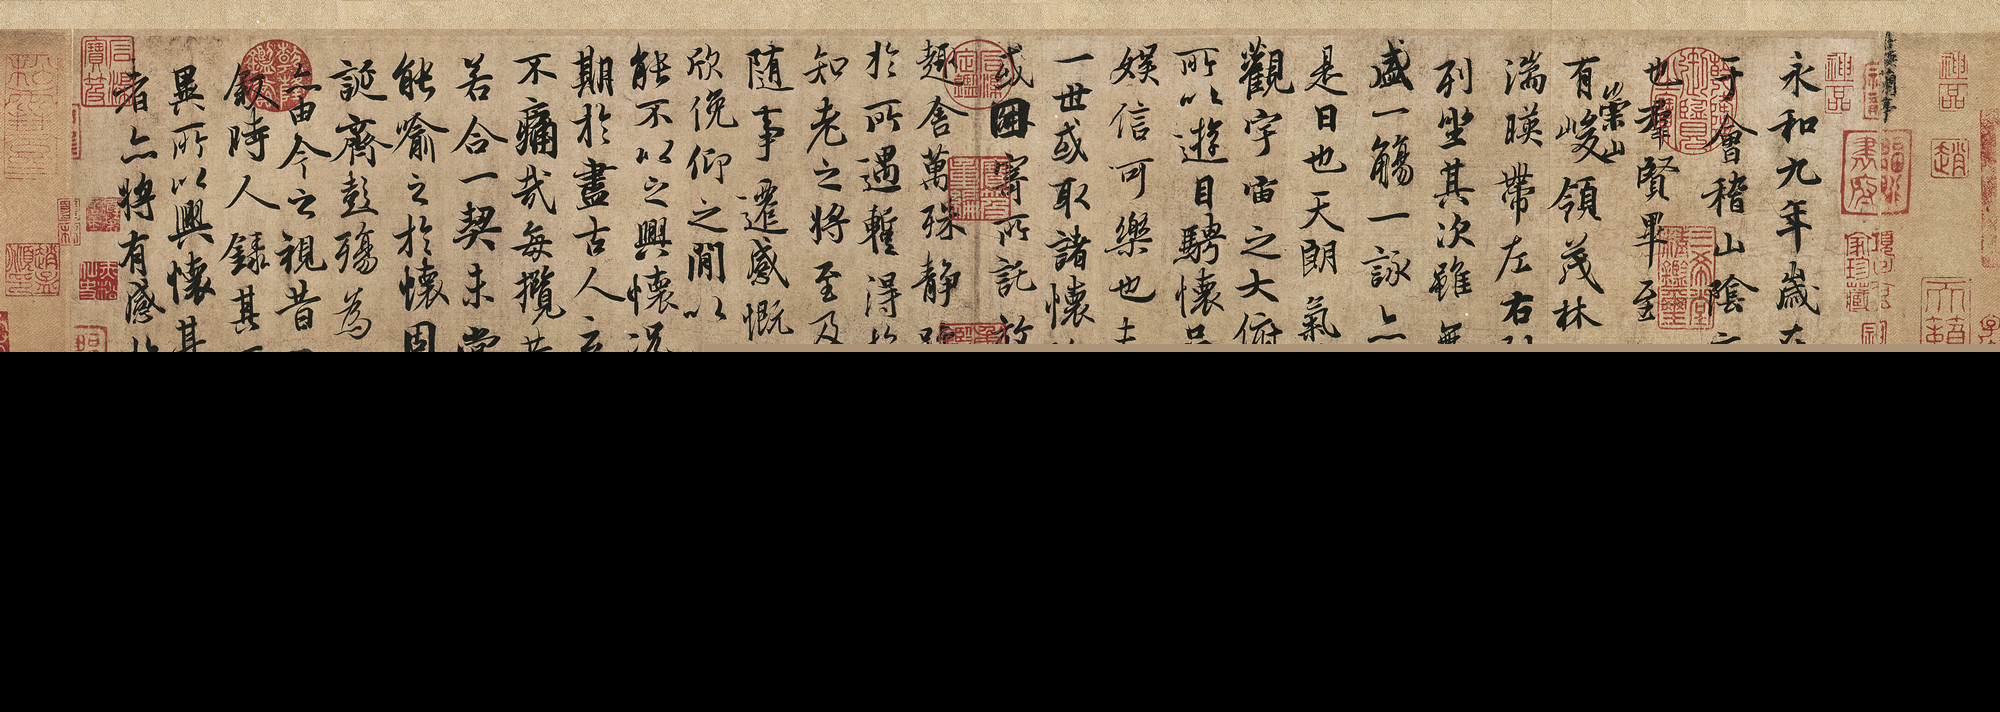 永和九年歲在
于會稽山陰
也群賢畢至
有崇山峻領茂林
湍暎帶左右
列坐其次雖無
盛一觴一詠亦
是日也天朗氣
觀宇宙之大俯
所以遊目騁懷
娛信可樂也夫
一世或取諸懷
或因寄所託放
趣舍萬殊静
於所遇暫得
知老之將至及
隨事遷感慨
欣俛仰之閒以
能不以之興懷況
期於盡古人云
不痛哉每攬
若合一契未嘗
能喻之於懷固
誕齊彭殤為
亦由今之視昔
叙時人錄其
異所以興懷其
者亦將有感